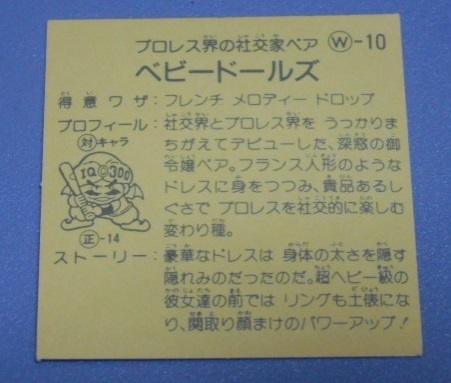 プロレス界の社交家ペア Ⓦ-10
ベビードールズ
得意ワザ：フレンチ メロディー ドロップ
プロフィール：社交界とプロレス界を うっかりま
ちがえてデビューした、深窓の御
令嬢ペア。フランス人形のような
ドレスに身をつつみ、貴品あるし
ぐさで プロレスを社交的に楽しむ
変わり種。
対キャラ
IQ 300
正-14
ストーリー：豪華なドレスは 身体の太さを隠す
隠れみのだったのだ。超ヘビー級の
彼女達の前では リングも土俵にな
り、関取り顔まけのパワーアップ！